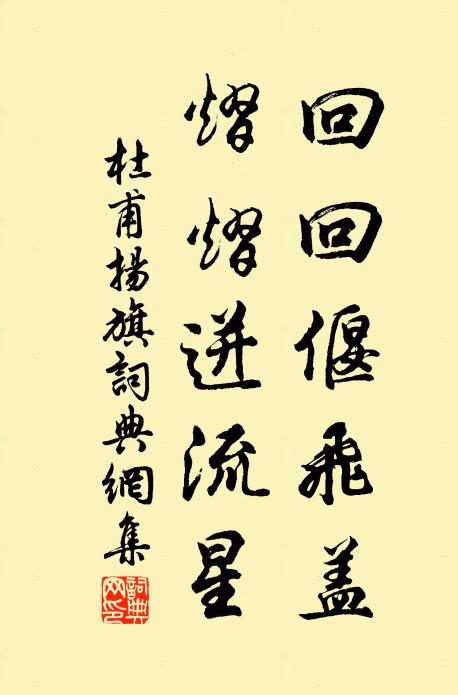 回回偃飛盖
熠熠迸流星
杜甫揚旗詞典網集
詞典
网印